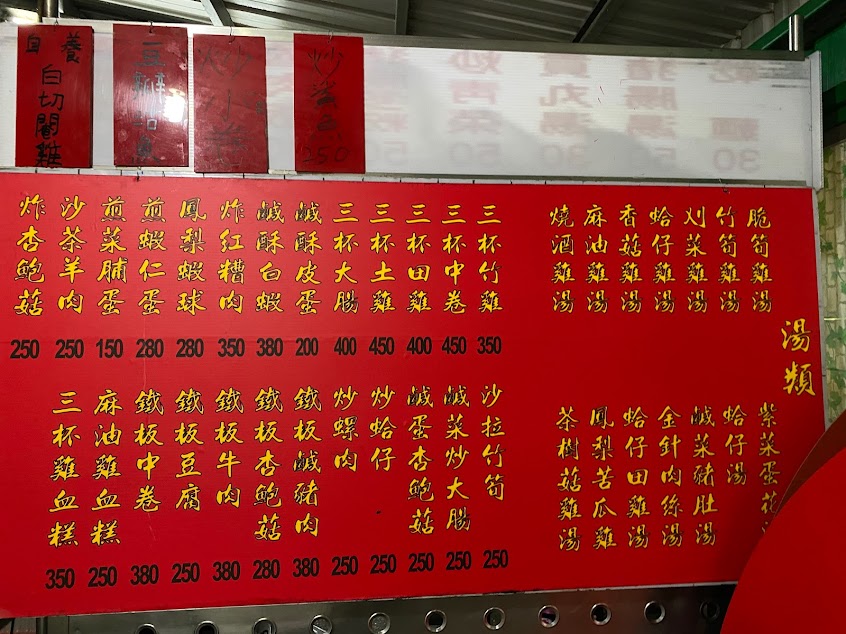 自養
白切閹雞
豆瓣
炒
炒鯊魚
250
脆筍雞湯
竹筍雞湯
刈菜雞湯
蛤仔雞湯
香菇雞湯
麻油雞湯
燒酒雞湯
湯類
紫菜蛋花
蛤仔湯
鹹菜豬肚湯
金針肉絲湯
蛤仔田雞湯
鳳梨苦瓜雞
茶樹菇雞湯
三杯竹雞 350
三杯中卷 450
三杯田雞 400
三杯土雞 450
三杯大腸 400
鹹酥皮蛋 200
鹹酥白蝦 380
炸紅糟肉 350
鳳梨蝦球 280
煎蝦仁蛋 280
煎菜脯蛋 150
沙茶羊肉 250
炸杏鮑菇 250
沙拉竹筍 250
鹹菜炒大腸 250
鹹蛋杏鮑菇 250
炒蛤仔 250
炒螺肉 250
鐵板鹹豬肉 380
鐵板杏鮑菇 280
鐵板牛肉 380
鐵板豆腐 250
鐵板中卷 380
麻油雞血糕 250
三杯雞血糕 350